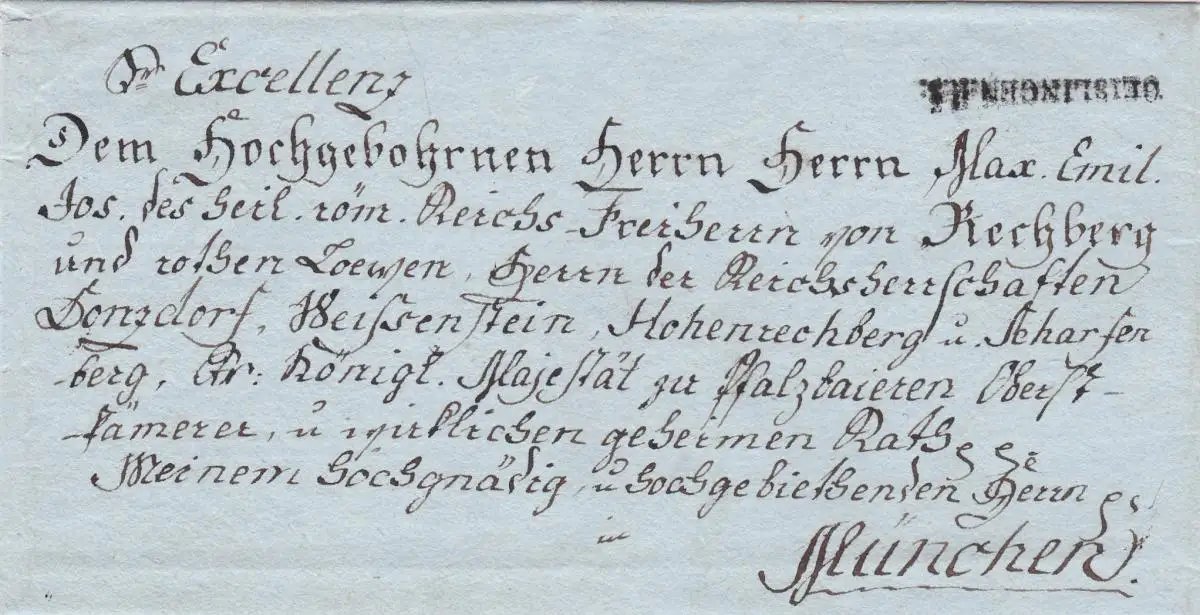 Sr Excellenz
GEISLINGEN
Dem Hochgebohrnen Herrn Herrn Max. Emil.
Jos. des heil. röm. Reichs-Freiherrn von Rechberg
und rothen Loewen, Herrn der Reichsherrschaften
Donzdorf, Weissenstein, Hohenrechberg u. Scharfen
-berg, Sr: Königl. Majestät zu Pfalzbaieren Oberst-
-kämerer, u wirklichen geheimen Rath
Meinem hochgnädig, u hochgebiethenden Herrn
in
München.